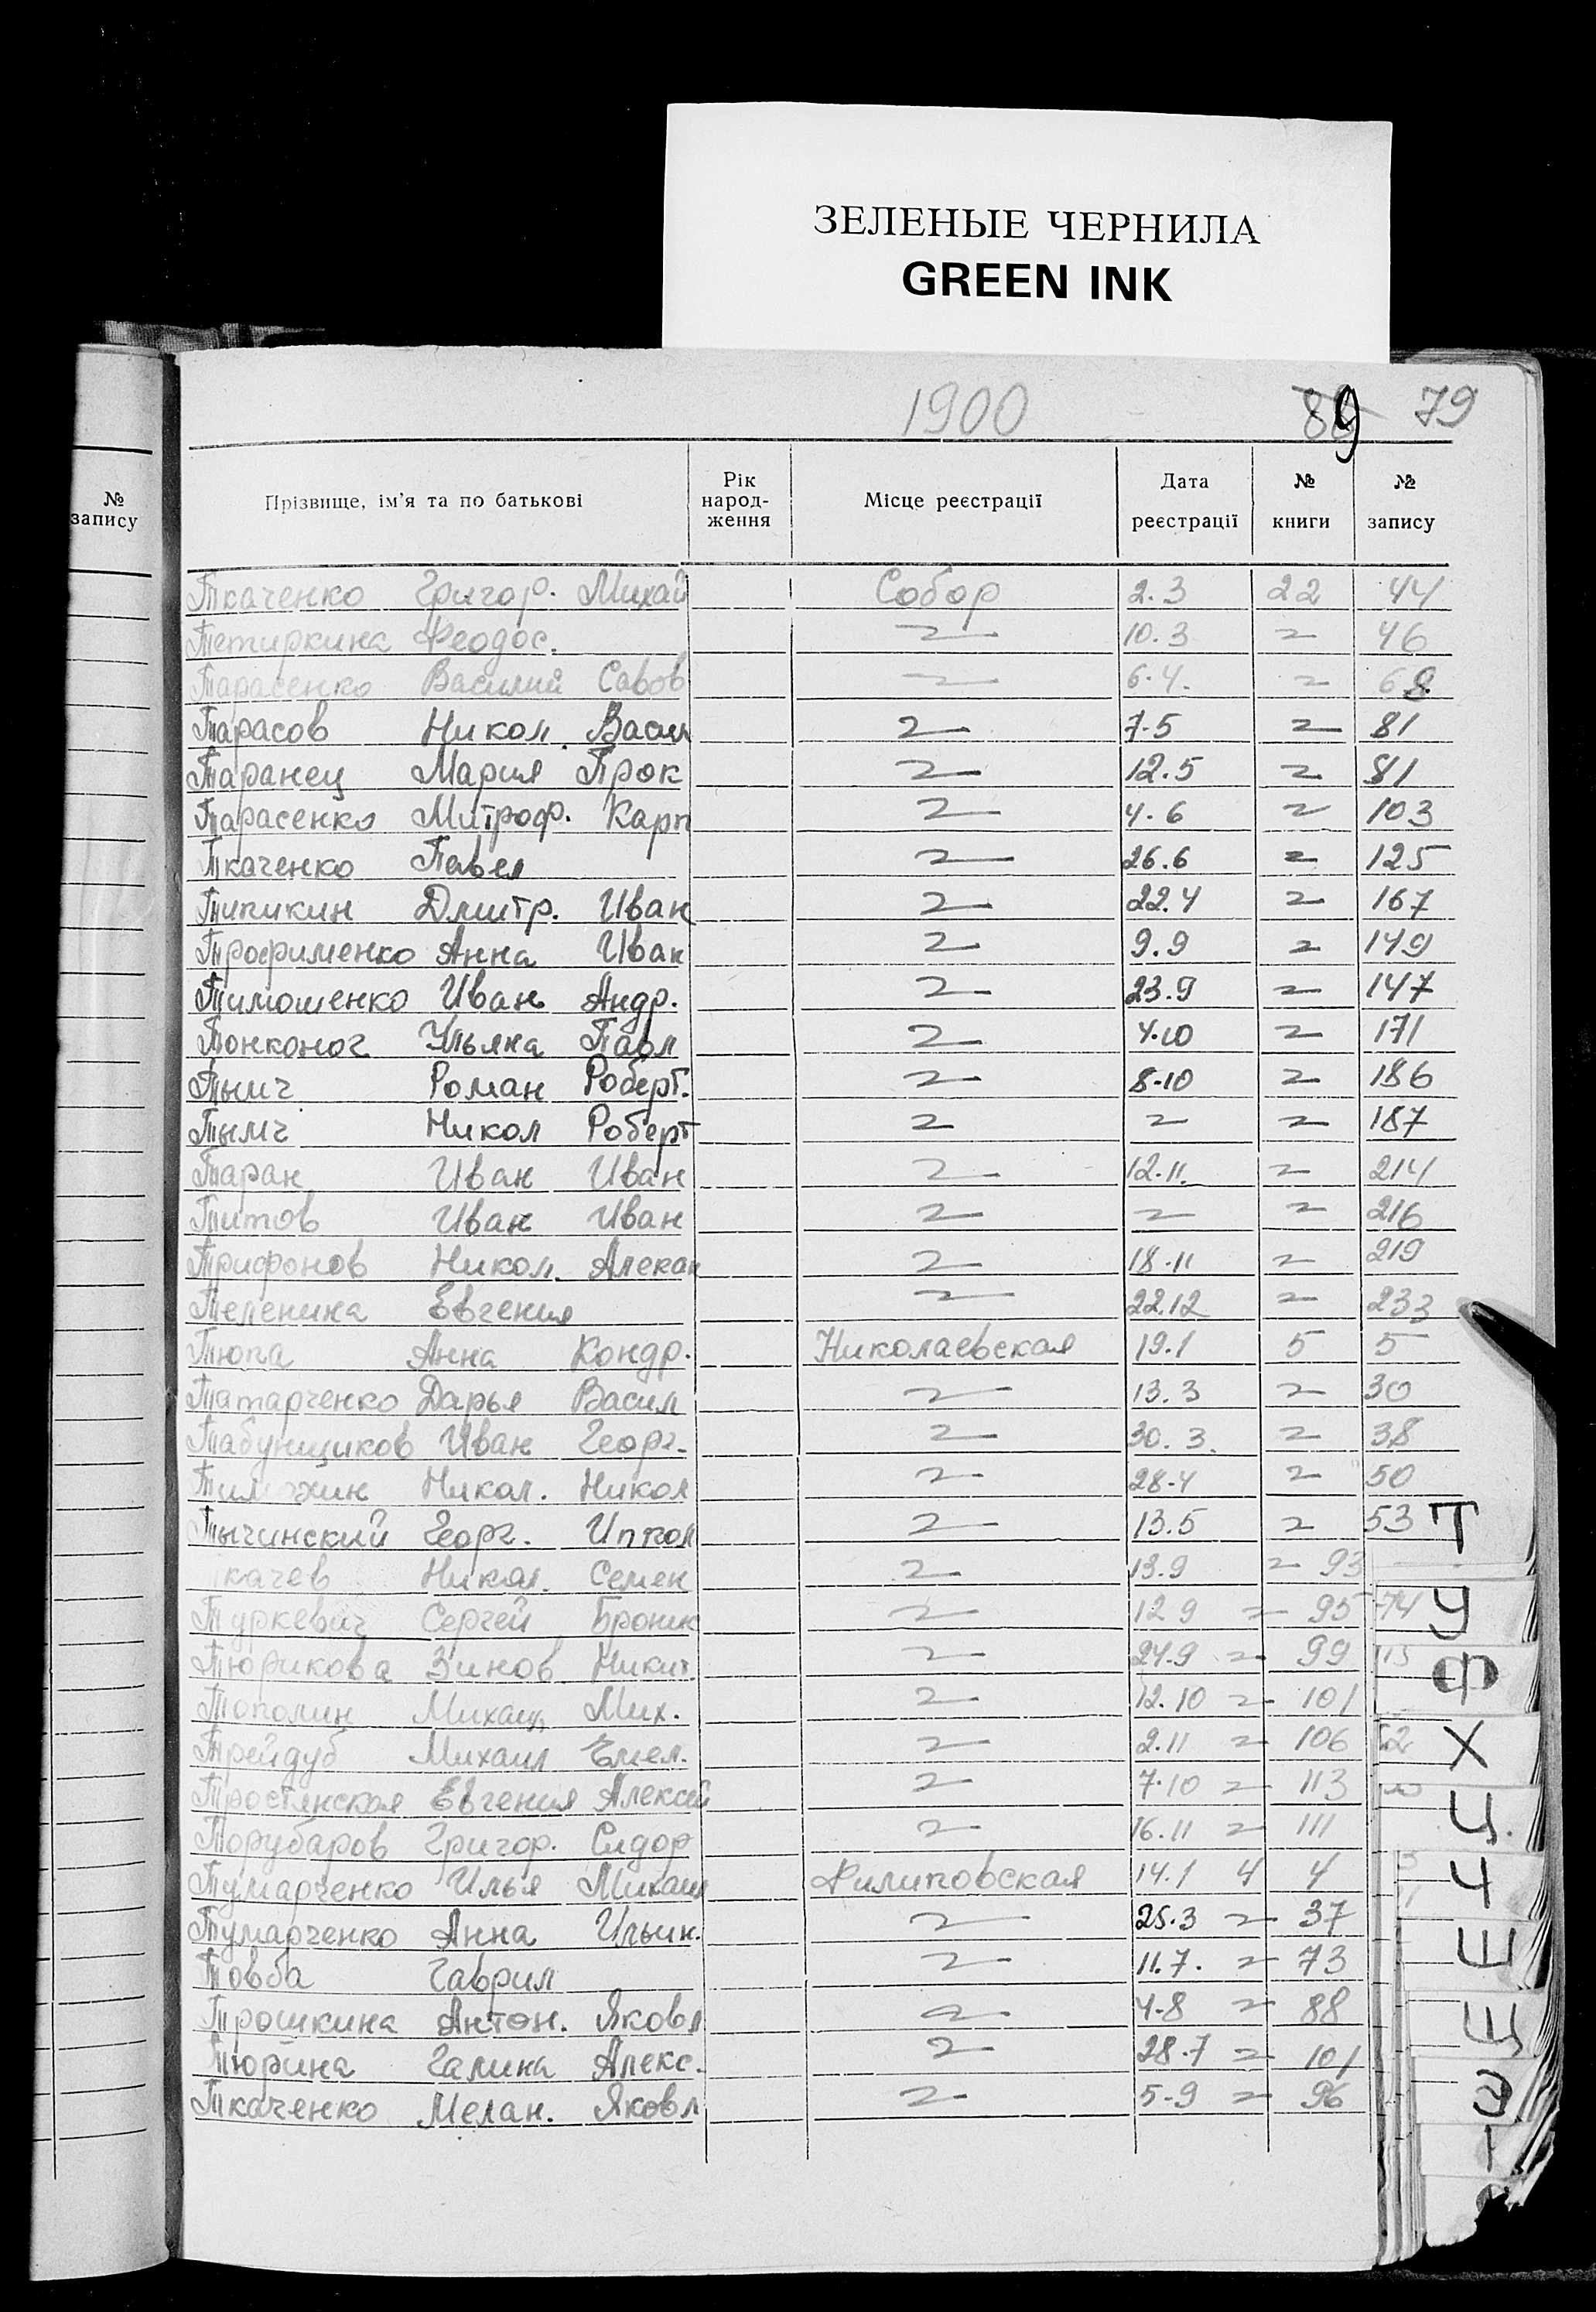 ЗЕЛЕНЫЕ ЧЕРНИЛА
GREEN INK
1900 79
№ запису
Прізвище, ім'я та по батькові Рік народ- ження Місце реєстрації Дата реєстрації № книги № запису
Ткаченко Григор. Михай Собор 2.3 22 44
Тетиркина Феодос. 10.3 46
Тарасенко Василий Савов 6.4. 68
Тарасов Никол. Васил 7.5 81
Таранец Мария Прок 12.5 81
Тарасенко Митроф. Карп 4.6 103
Ткаченко Павел 26.6 125
Типикин Дмитр. Иван 22.4 167
Трофименко Анна Иван 9.9 149
Тимошенко Иван Андр. 23.9 147
Тонконог Ульяна Павл 4.10 171
Тымч Роман Роберт. 8-10 186
Тымч Никол Роберт 187
Таран Иван Иван 12.11. 214
Титов Иван Иван 216
Трифонов Никол. Алекан 18.11 219
Теленина Евгения 22.12 233
Тюпа Анна Кондр. Николаевская 19.1 5 5
Татарченко Дарья Васил 13.3 30
Табунщиков Иван Георг. 30.3. 38
Никол. Никол 28.4 50
Тычинский Георг. 13.5 53
качев Никол. Семен 13.9 93
Туркевич Сергей Броник 12 9 95
Тюрикова Зинов. Никит. 24.9 99
Тополин Михаил Мих. 12.10 101
Трейдуб Михаил Емел. 2.11 106
Тростянская Евгения Алексей 7.10 113
Торубаров Григор. Сидор 16.11 111
Тумарченко Илья Михаил Филиповская 14.1 4 4
Тумарченко Анна Ильин. 25.3 37
Товба Гаврил 11.7. 73
Трошкина Антон. Яковл 4-8 88
Тюрина Галина Алекс. 28.7 101
Ткаченко Мелан. Яковл 5-9 96
Т
У
Ф
Х
Ц
Ч
Ш
Щ
Э